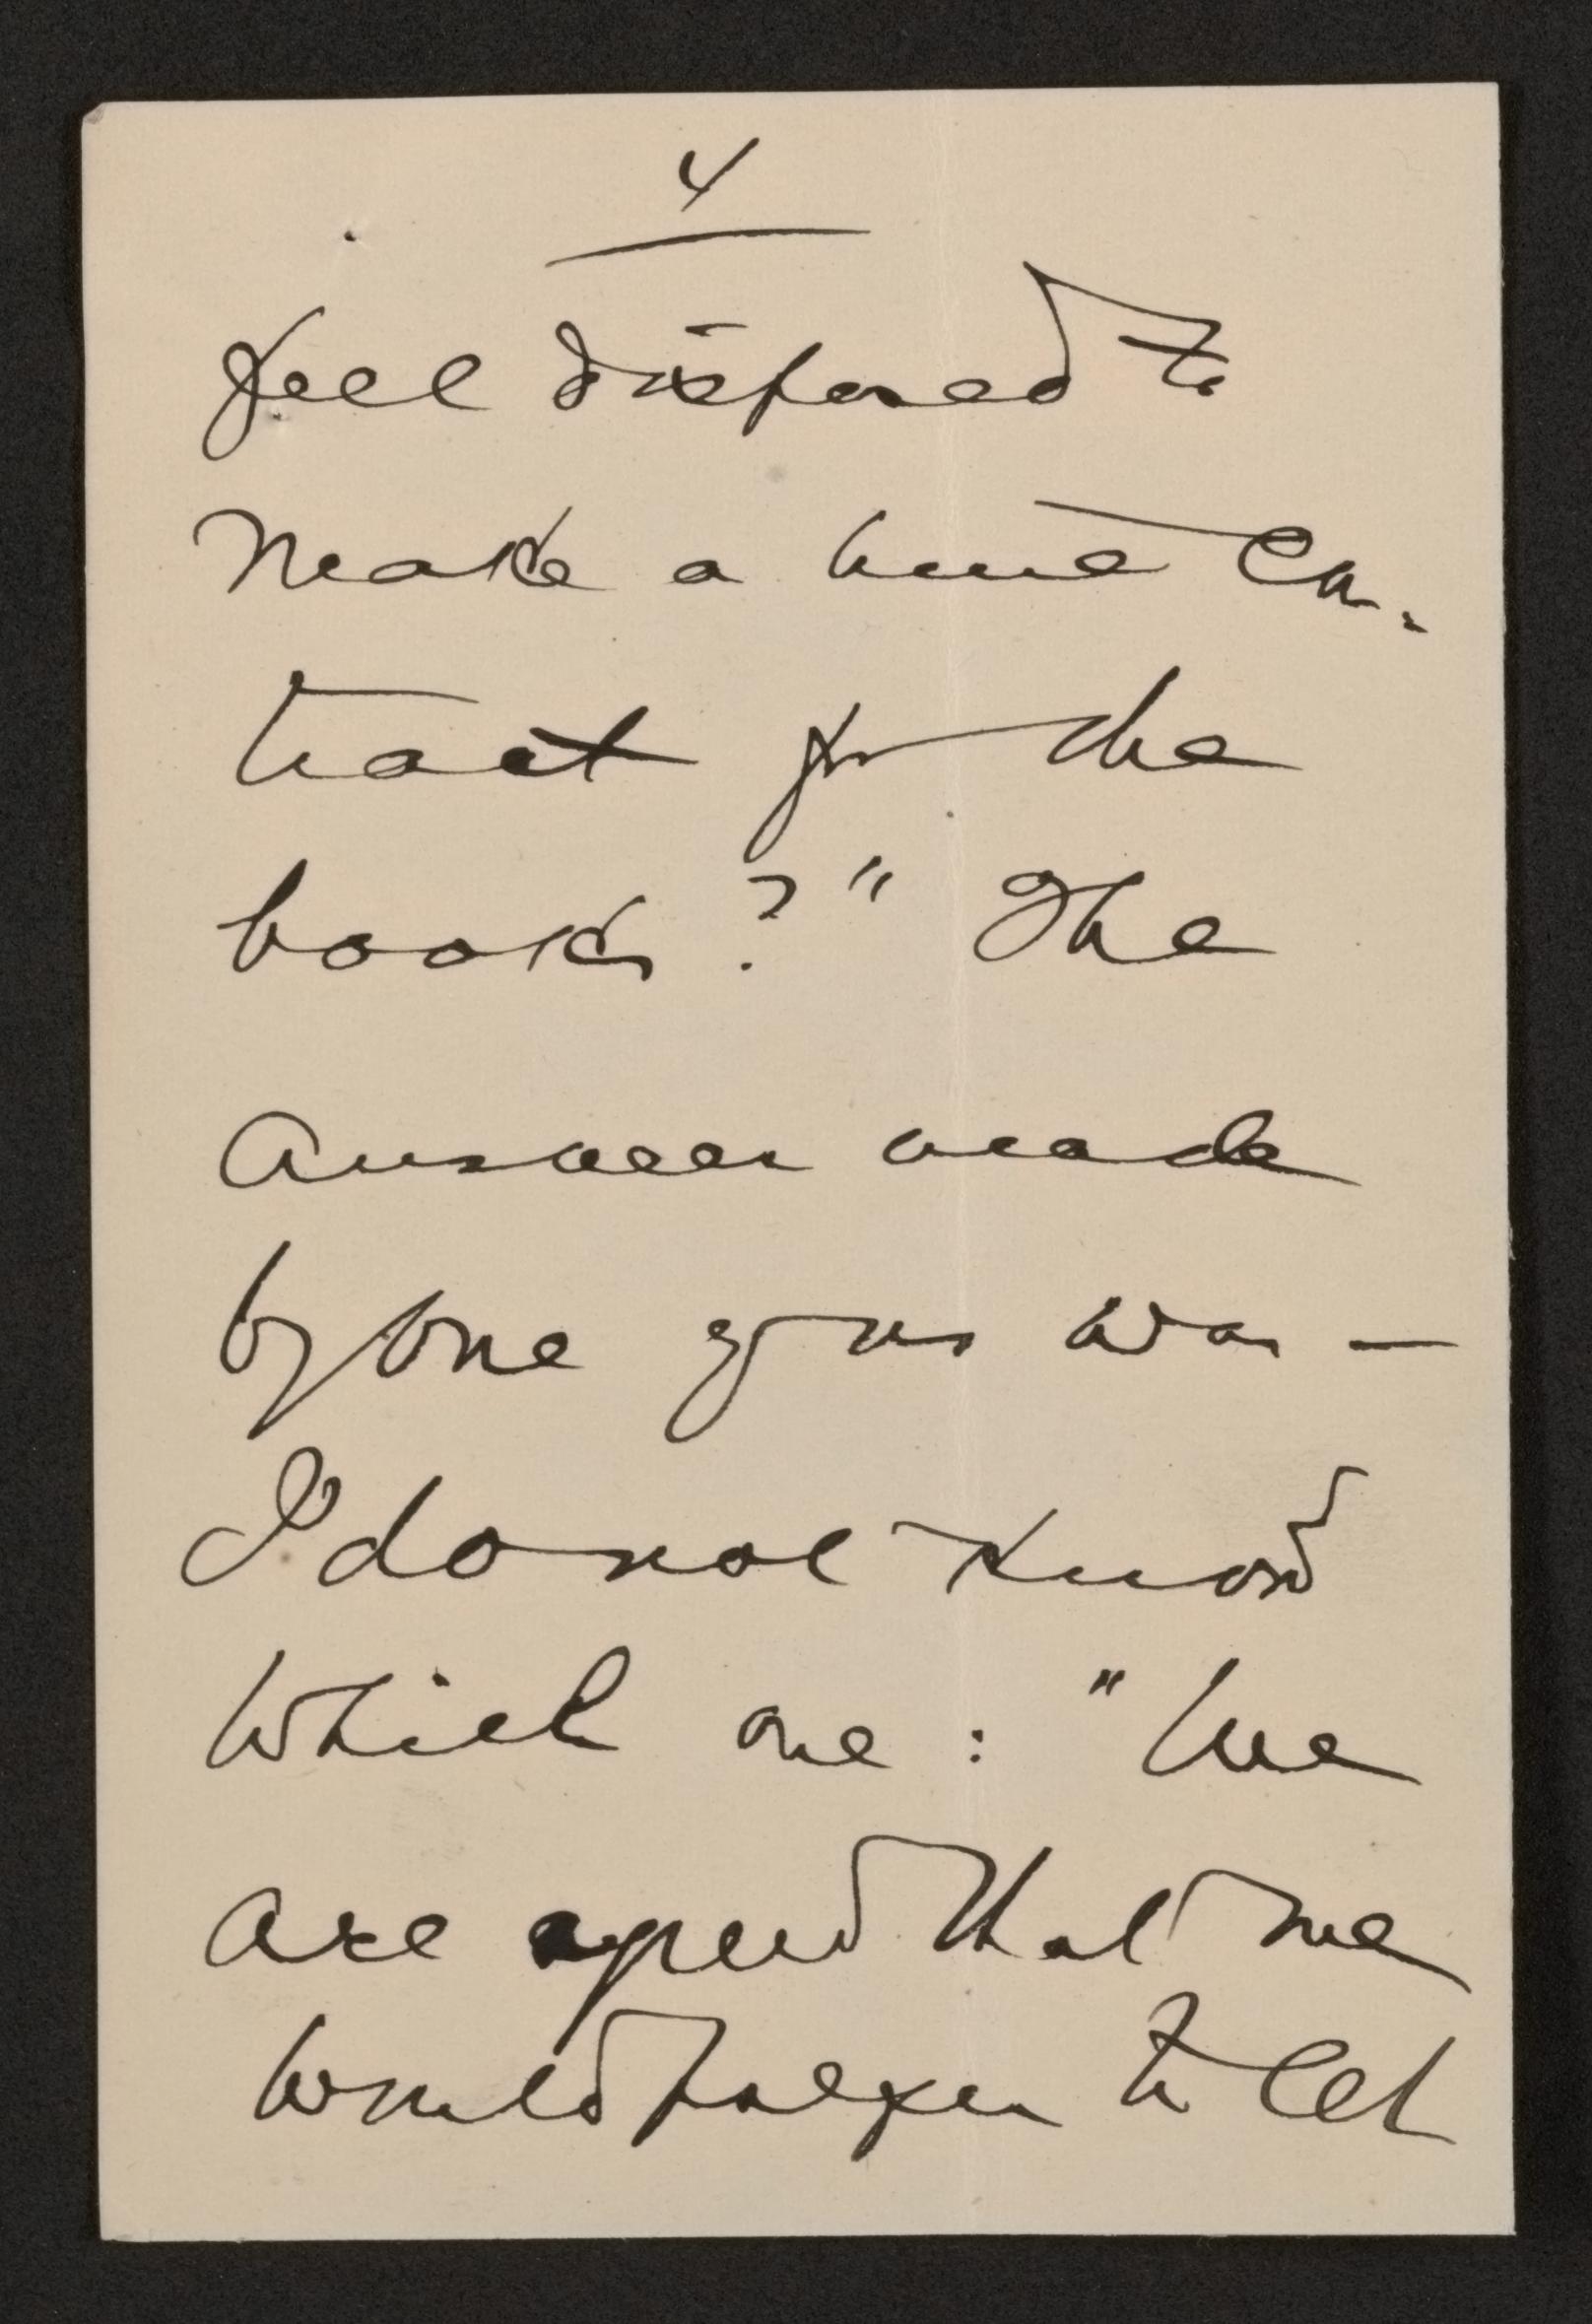 4
feel disposed to
make a time con-
tract for the
books?" The
answer made
by one of us was —
I do not know
which one: "We
are agreed that we
would prefer to let